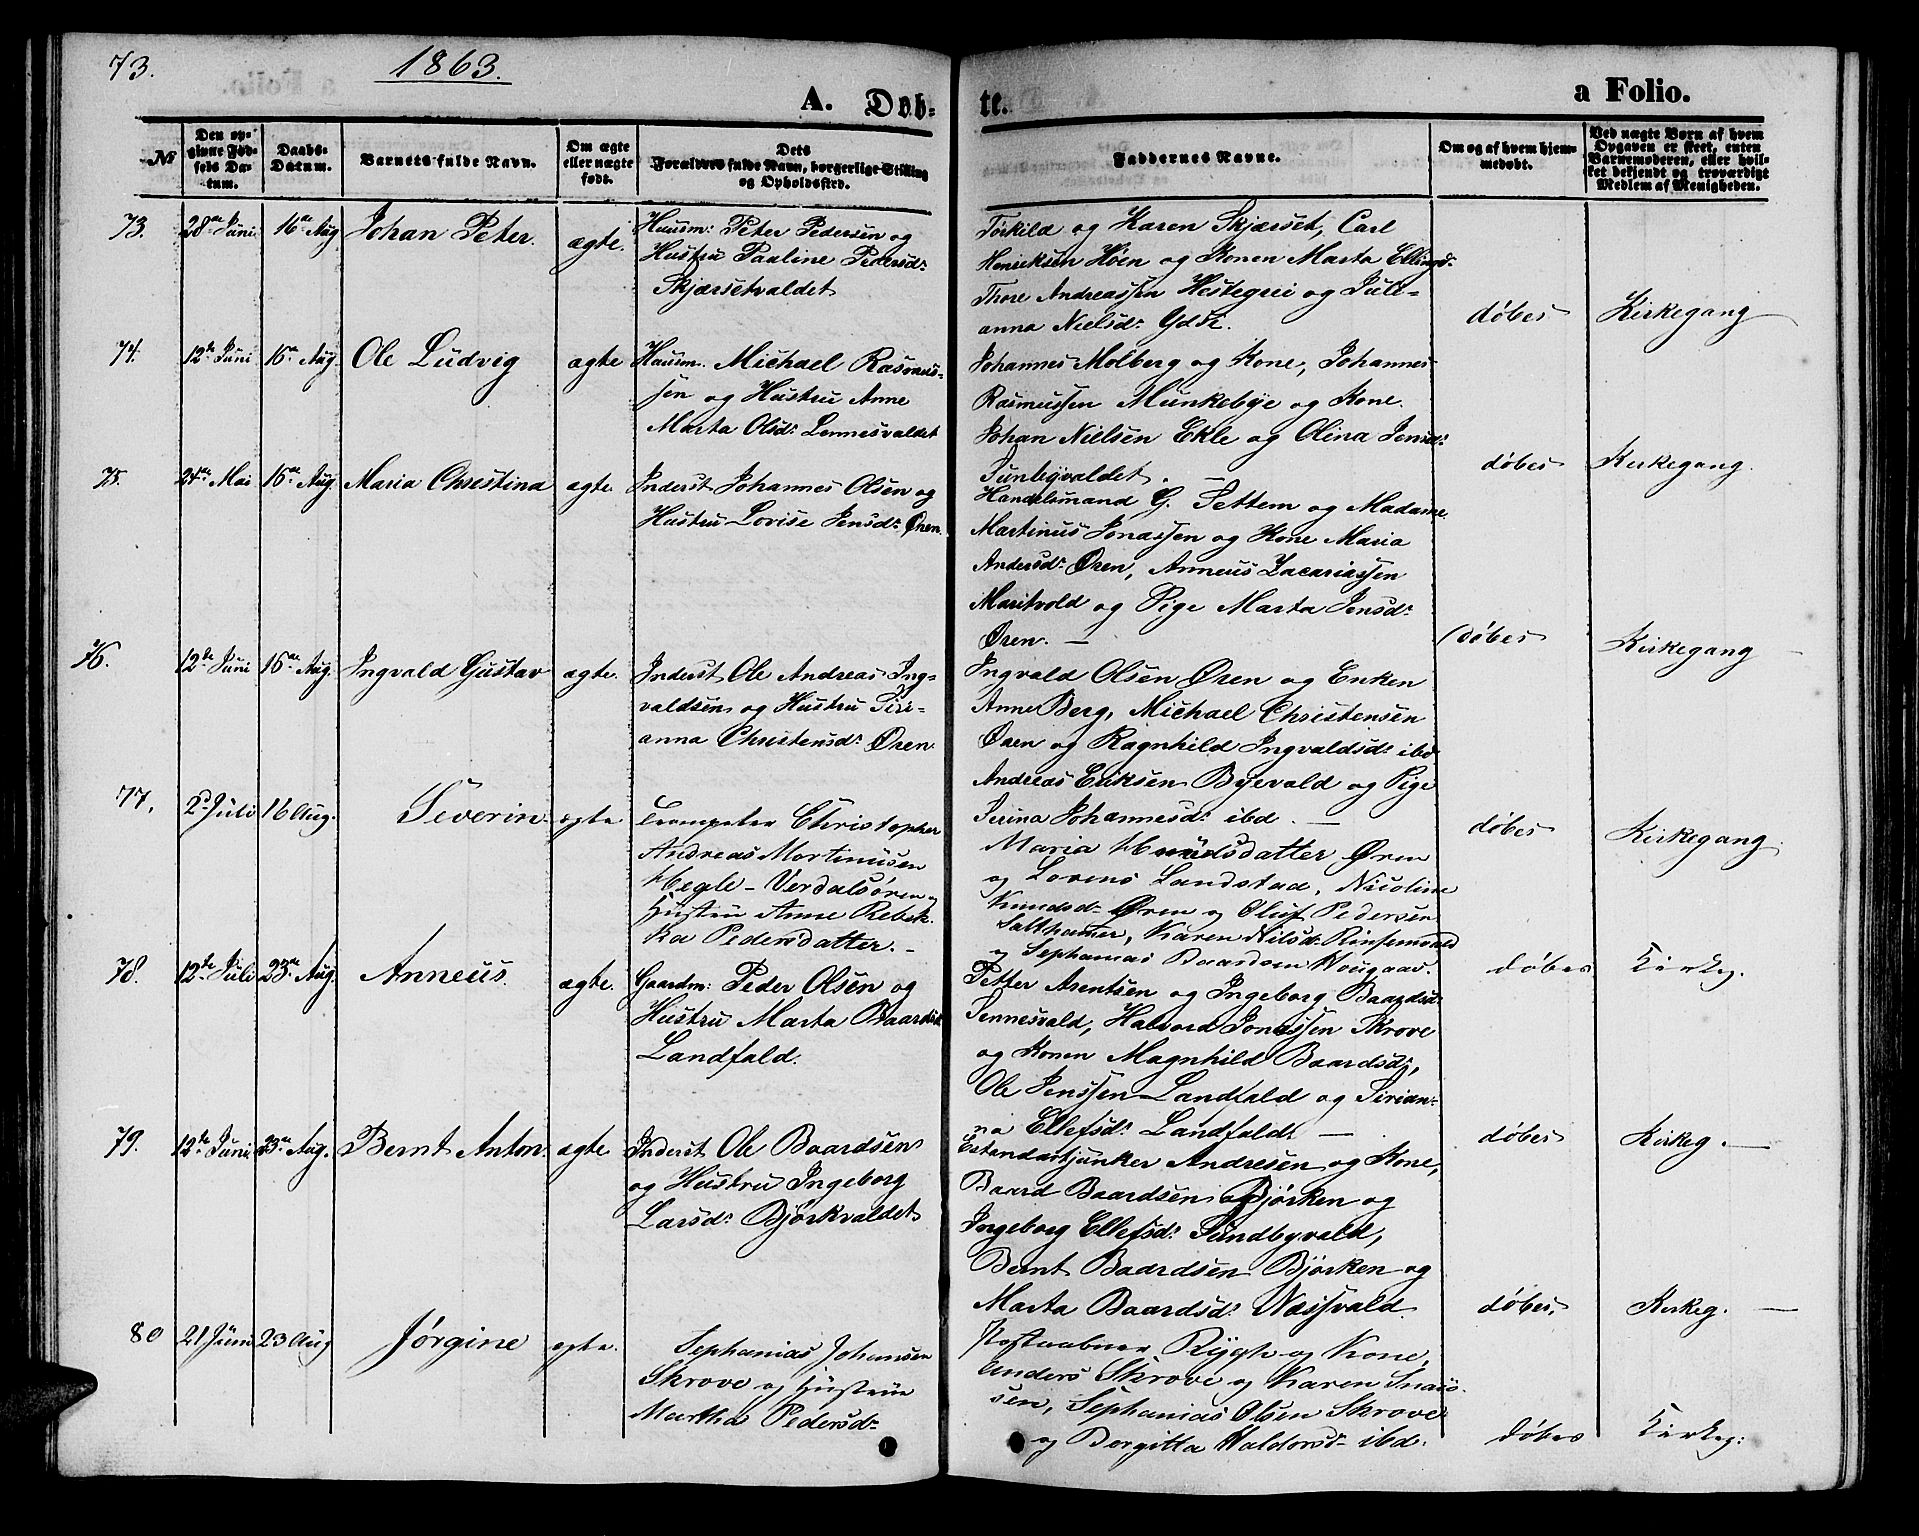 73.
1863.
A. Døb-
te.
a Folio.
№
Den op-
givne Fød-
sels Da-
tum.
Daabs-
Datum.
Barnets fulde Navn.
Om ægte
eller uægte
født.
Dets
Forældres fulde Navn, borgerlige Stilling
og Opholdssted.
Faddernes Navne.
Om og af hvem hjem-
medøbt.
Ved uægte Børn af hvem
Opgaven er skeet, enten
Barnemoderen, eller hvil-
ket bekjendt og troværdigt
Medlem af Menigheden.
73.
28de Juni
16de Aug
Johan Peter.
ægte.
Huusm: Peter Pedersen og
Hustru Pauline Pedersd:
Skjærsetvaldet
Torkild og Karen Skjærset, Carl
Henriksen Høen og Konen Marta Ellingsd:
Thore Andreassen Hestegrei og Juli-
anna Nielsd: Ydse.
døbes
Kirkegang
74.
12te Juni
16de Aug.
Ole Ludvig
ægte
Huusm. Michael Rasmus-
sen og Hustru Anne
Marta Olsd: Lennesvaldet
Johannes Molberg og Kone, Johannes
Rasmussen Munkebye og Kone.
Johan Nielsen Ekle og Olina Jensd:
Sundbyvaldet.
døbes
Kirkegang.
75.
24de Mai
16de Aug.
Maria Christina
ægte.
Inderst Johannes Olsen og
Hustru Lovise Jensd: Øren
Handelsmand G. Settem og Madame
Martinus Jonassen og Kone Maria
Andersd: Øren, Anneus Zacariassen
Maritvold og Pige Marta Jensd:
Øren.
døbes
Kirkegang
76.
12te Juni
16de Aug.
Ingvald Gustav
ægte.
Inderst Ole Andreas Ing-
valdsen og Hustru Siri-
anna Christensd: Øren
Ingvald Olsen Øren og Enken
Anne Berg, Michael Christensen
Øren og Ragnhild Ingvaldsd: ibd
Andreas Eriksen Byevald og Pige
Serina Johannesd: ibd.
døbes
Kirkegang.
77.
2d Juli
16 Aug.
Severin
ægte
Trompeter Christopher
Andreas Mortinusen
Hegle - Verdalsøren og
Hustru Anne Rebek-
ka Pedersdatter.
Maria datter Øren
og Lorens Landstad, Nicoline
Knudsd: Øren og Oluf Pedersen
Salthamer, Karen Nilsd: Rinsemvald
og Sephanias Baardsen Hougaas.
døbes
Kirkeg.
78.
12te Juli
23de Aug.
Anneus.
ægte.
Gaardm: Peder Olsen og
Hustru Marta Baardsd:
Landfald.
Petter Arentsen og Ingeborg Baardsd:
Sennesvald, Halvord Jonassen Skrove
og Konen Magnhild Baardsd;
Ole Jenssen Landfald og Sirian-
na Ellefsd: Landfald.
døbes
Kirkeg.
79.
12te Juni
23de Aug.
Bernt Anton
ægte
Inderst Ole Baardsen
og Hustru Ingeborg
Larsd: Bjørkvaldet
Estandartjunker Andresen og Kone,
Baard Baardsen Bjørken og
Ingeborg Ellefsd: Sundbyvald,
Bernt Baardsen Bjørken og
Marta Baardsd: Næssvald
døbes.
Kirkeg.
80
21 Juni
23 Aug
Jørgine
ægte.
Sephanias Johansen
Skrove og Hustrue
Martha Pedersd:
Postaabner Rygh og Kone,
Anders Skrove og Karen Snaus-
sen, Sephanias Olsen Skrove
og Bergitta Haldorsd: ibd.
døbes
Kirkeg: